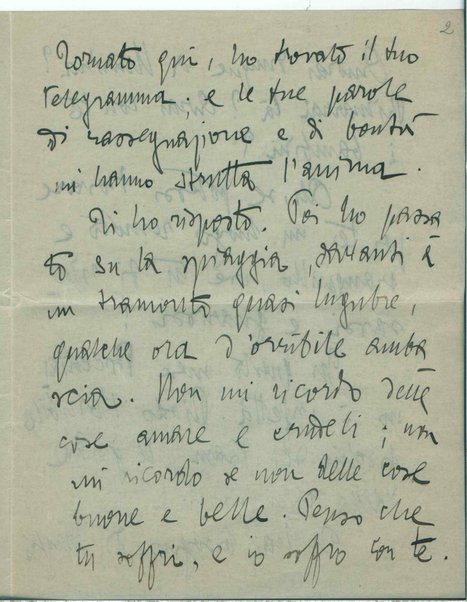 2
Tornato qui, ho trovato il tuo
telegramma; e le tue parole
di rassegnazione e di bontà
mi hanno strutta l'anima.
Ti ho risposto. Poi ho passa
to su la spiaggia, davanti a
un tramonto quasi lugubre,
qualche ora d'orribile amba
scia. Non mi ricordo delle
cose amare e crudeli; non
mi ricordo se non delle cose
buone e belle. Penso che
tu soffri, e io soffro con te.